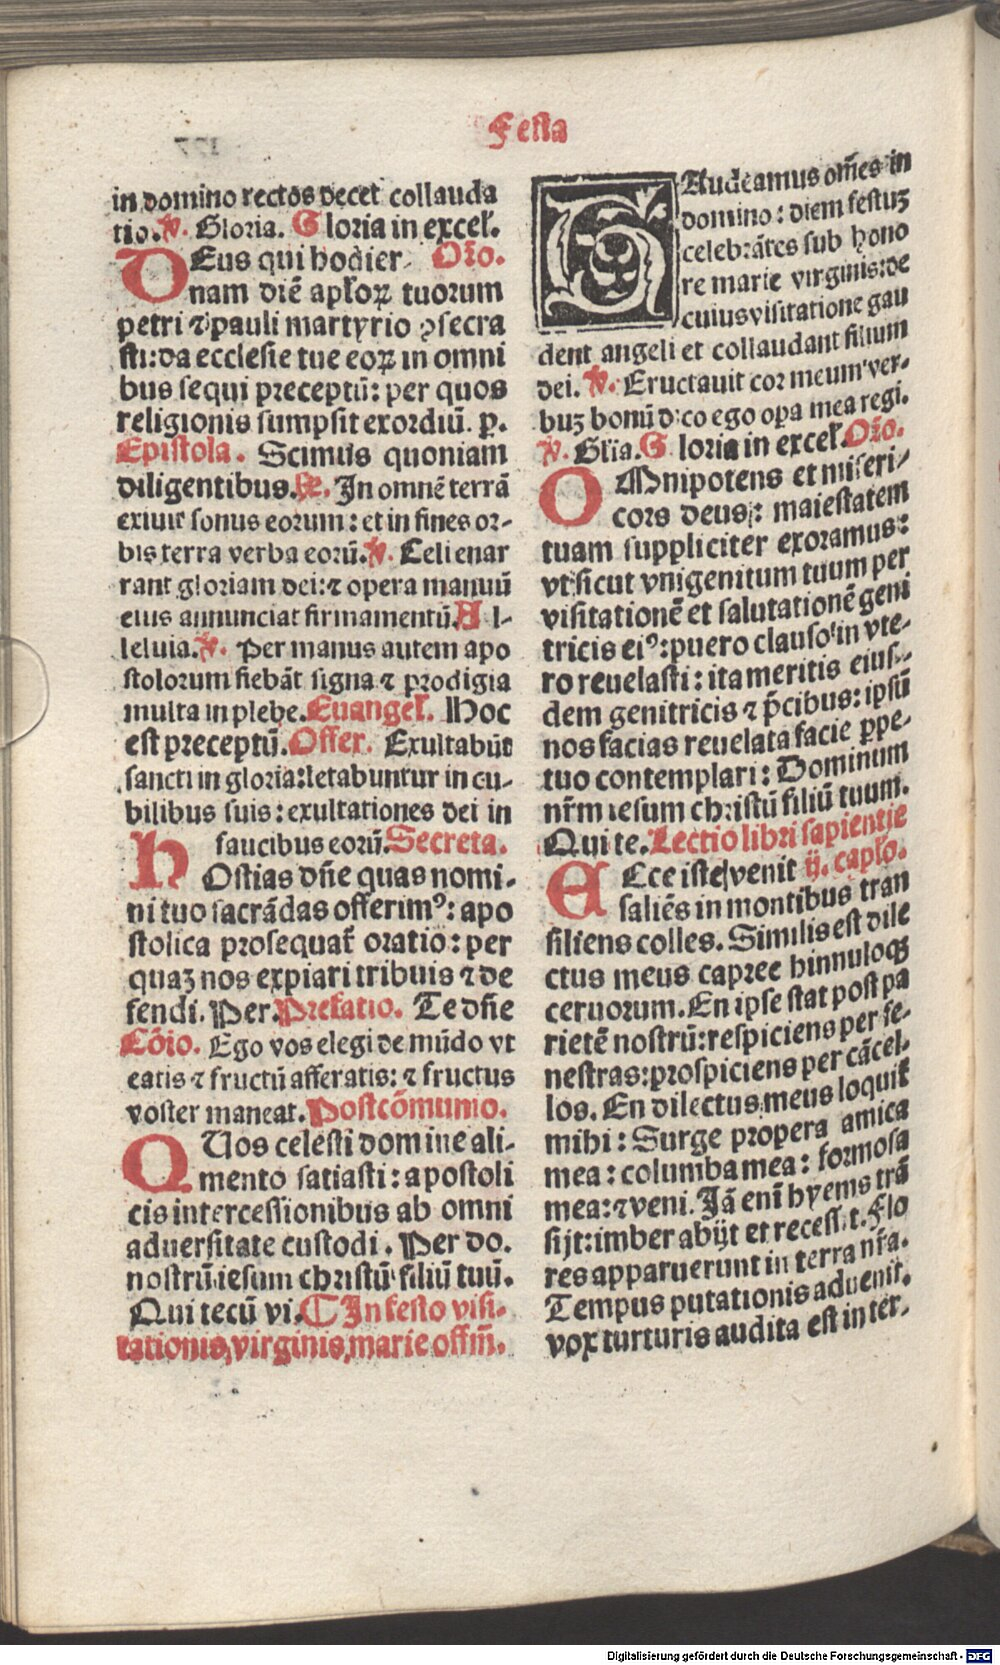 Festa
in domino rectos decet collauda
tio. ℣. Gloria. Gloria in excel̄.
DEus qui hodier Oro.
nam diē apl̄oꝝ tuorum
petri ⁊ pauli martyrio ꝯsecra
sti: da ecclesie tue eoꝝ in omni
bus sequi preceptū: per quos
religionis sumpsit exordiū. p.
Epistola. Scimus quoniam
diligentibus. In omnē terrā
exiuit sonus eorum: et in fines or-
bis terra verba eorū. ℣. Celi enar
rant gloriam dei: ⁊ opera manuū
eius annunciat firmamentū. Al-
leluia. ℣. Per manus autem apo
stolorum fiebāt signa ⁊ prodigia
multa in plebe. Euangel̄. Hoc
est preceptū. Offer. Exultabūt
sancti in gloria: letabuntur in cu-
bilibus suis: exultationes dei in
faucibus eorū. Secreta.
HOstias dn̄e quas nomi-
ni tuo sacrādas offerimꝰ: apo
stolica prosequat̄ oratio: per
quaꝫ nos expiari tribuis ⁊ de
fendi. Per. Prefatio. Te dn̄e
Cōio. Ego vos elegi de mūdo vt
eatis ⁊ fructū afferatis: ⁊ fructus
vester maneat. Postcōmunio.
QUos celesti domine ali-
mento satiasti: apostoli
cis intercessionibus ab omni
aduersitate custodi. Per do.
nostrū iesum christū filiū tuū.
Qui tecū vi. ¶ In festo visi-
tationis, virginis, marie offm̄.
GAudeamus om̄es in
domino: diem festuꝫ
celebrātes sub hono
re marie virginis: de
cuius visitatione gau
dent angeli et collaudant filium
dei. ℣. Eructauit cor meum ver-
buꝫ bonū dico ego opa mea regi.
℣. Glia. Gloria in excel̄. Oro.
OMnipotens et miseri-
cors deus: maiestatem
tuam suppliciter exoramus:
vt sicut vnigenitum tuum per
visitationē et salutationē geni
tricis eiꝰ: puero clauso in vte-
ro reuelasti: ita meritis eius-
dem genitricis ⁊ p̄cibus: ipsū
nos facias reuelata facie ꝑpe-
tuo contemplari: Dominum
nr̄m iesum christū filiū tuum.
Qui te. Lectio libri sapientie
ij. capl̄o.
ECce iste venit
saliēs in montibus tran
siliens colles. Similis est dile
ctus meus capree hinnuloqꝫ
ceruorum. En ipse stat post pa
rietē nostrū: respiciens per fe-
nestras: prospiciens per cācel-
los. En dilectus meus loquit̄
mihi: Surge propera amica
mea: columba mea: formosa
mea: ⁊ veni. Jā eni̅ hyems trā
sijt: imber abijt et recessit. Flo
res apparuerunt in terra nr̄a.
Tempus putationis aduenit.
vox turturis audita est in ter-
Digitalisierung gefördert durch die Deutsche Forschungsgemeinschaft - DFG